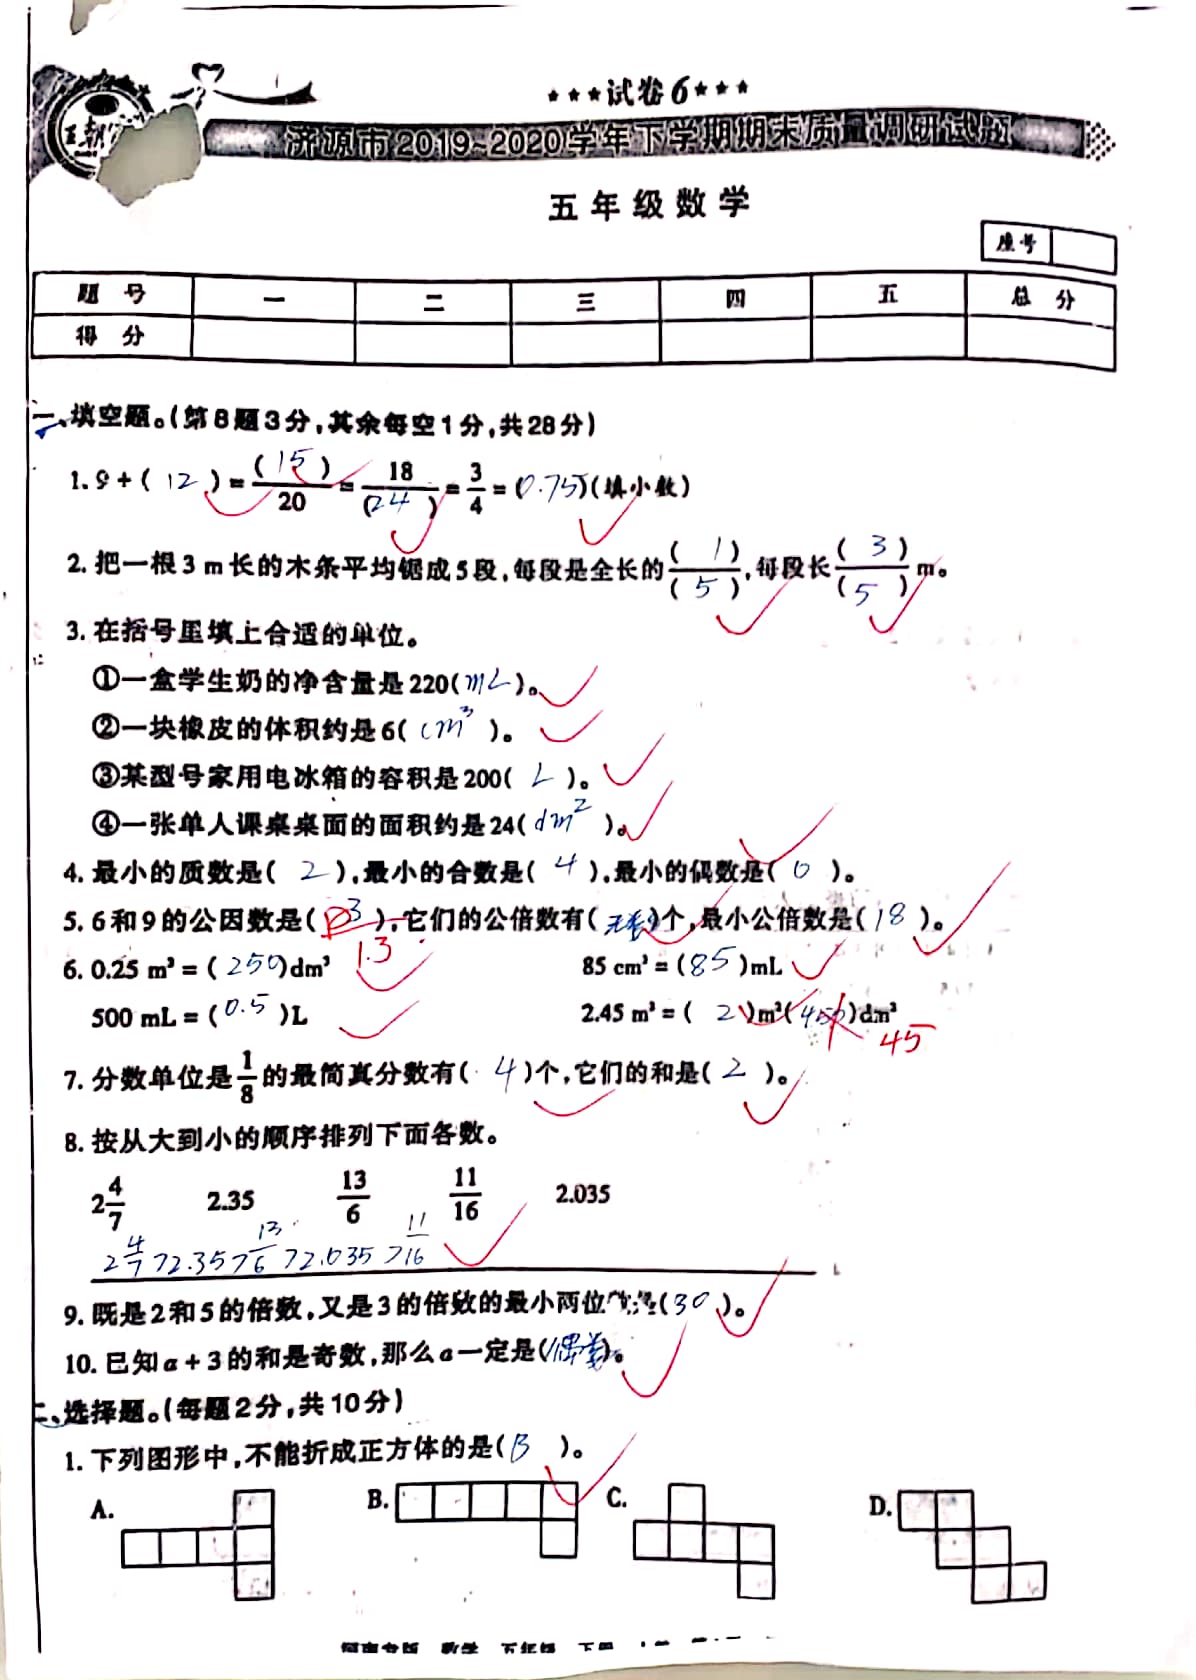 ★★★试卷6★★★
济源市2019~2020学年下学期期末质量调研试题
五年级数学
座号
题 号 一 二 三 四 五 总 分
得 分
一、填空题。(第8题3分,其余每空1分,共28分)
1. 9÷( 12 )=( 15 )/20=18/( 24 )=3/4=(0.75)(填小数)
2. 把一根3 m长的木条平均锯成5段,每段是全长的( 1 )/( 5 ),每段长( 3 )/( 5 )m。
3. 在括号里填上合适的单位。
①一盒学生奶的净含量是220(mL)。
②一块橡皮的体积约是6( cm³ )。
③某型号家用电冰箱的容积是200( L )。
④一张单人课桌桌面的面积约是24( dm² )。
4. 最小的质数是( 2 ),最小的合数是( 4 ),最小的偶数是( 0 )。
5. 6和9的公因数是( 3 ),它们的公倍数有(无数)个,最小公倍数是( 18 )。
1.3
6. 0.25 m³=( 250 )dm³ 85 cm³=( 85 )mL
500 mL=( 0.5 )L 2.45 m²=( 2 )m²( 450 )dm²
45
7. 分数单位是1/8的最简真分数有( 4 )个,它们的和是( 2 )。
8. 按从大到小的顺序排列下面各数。
2 4/7 2.35 13/6 11/16 2.035
2 4/7>2.35>13/6>2.035>11/16
9. 既是2和5的倍数,又是3的倍数的最小两位数是( 30 )。
10. 已知a+3的和是奇数,那么a一定是(偶数)。
二、选择题。(每题2分,共10分)
1. 下列图形中,不能折成正方体的是( B )。
A. B. C. D.
数学 五年级